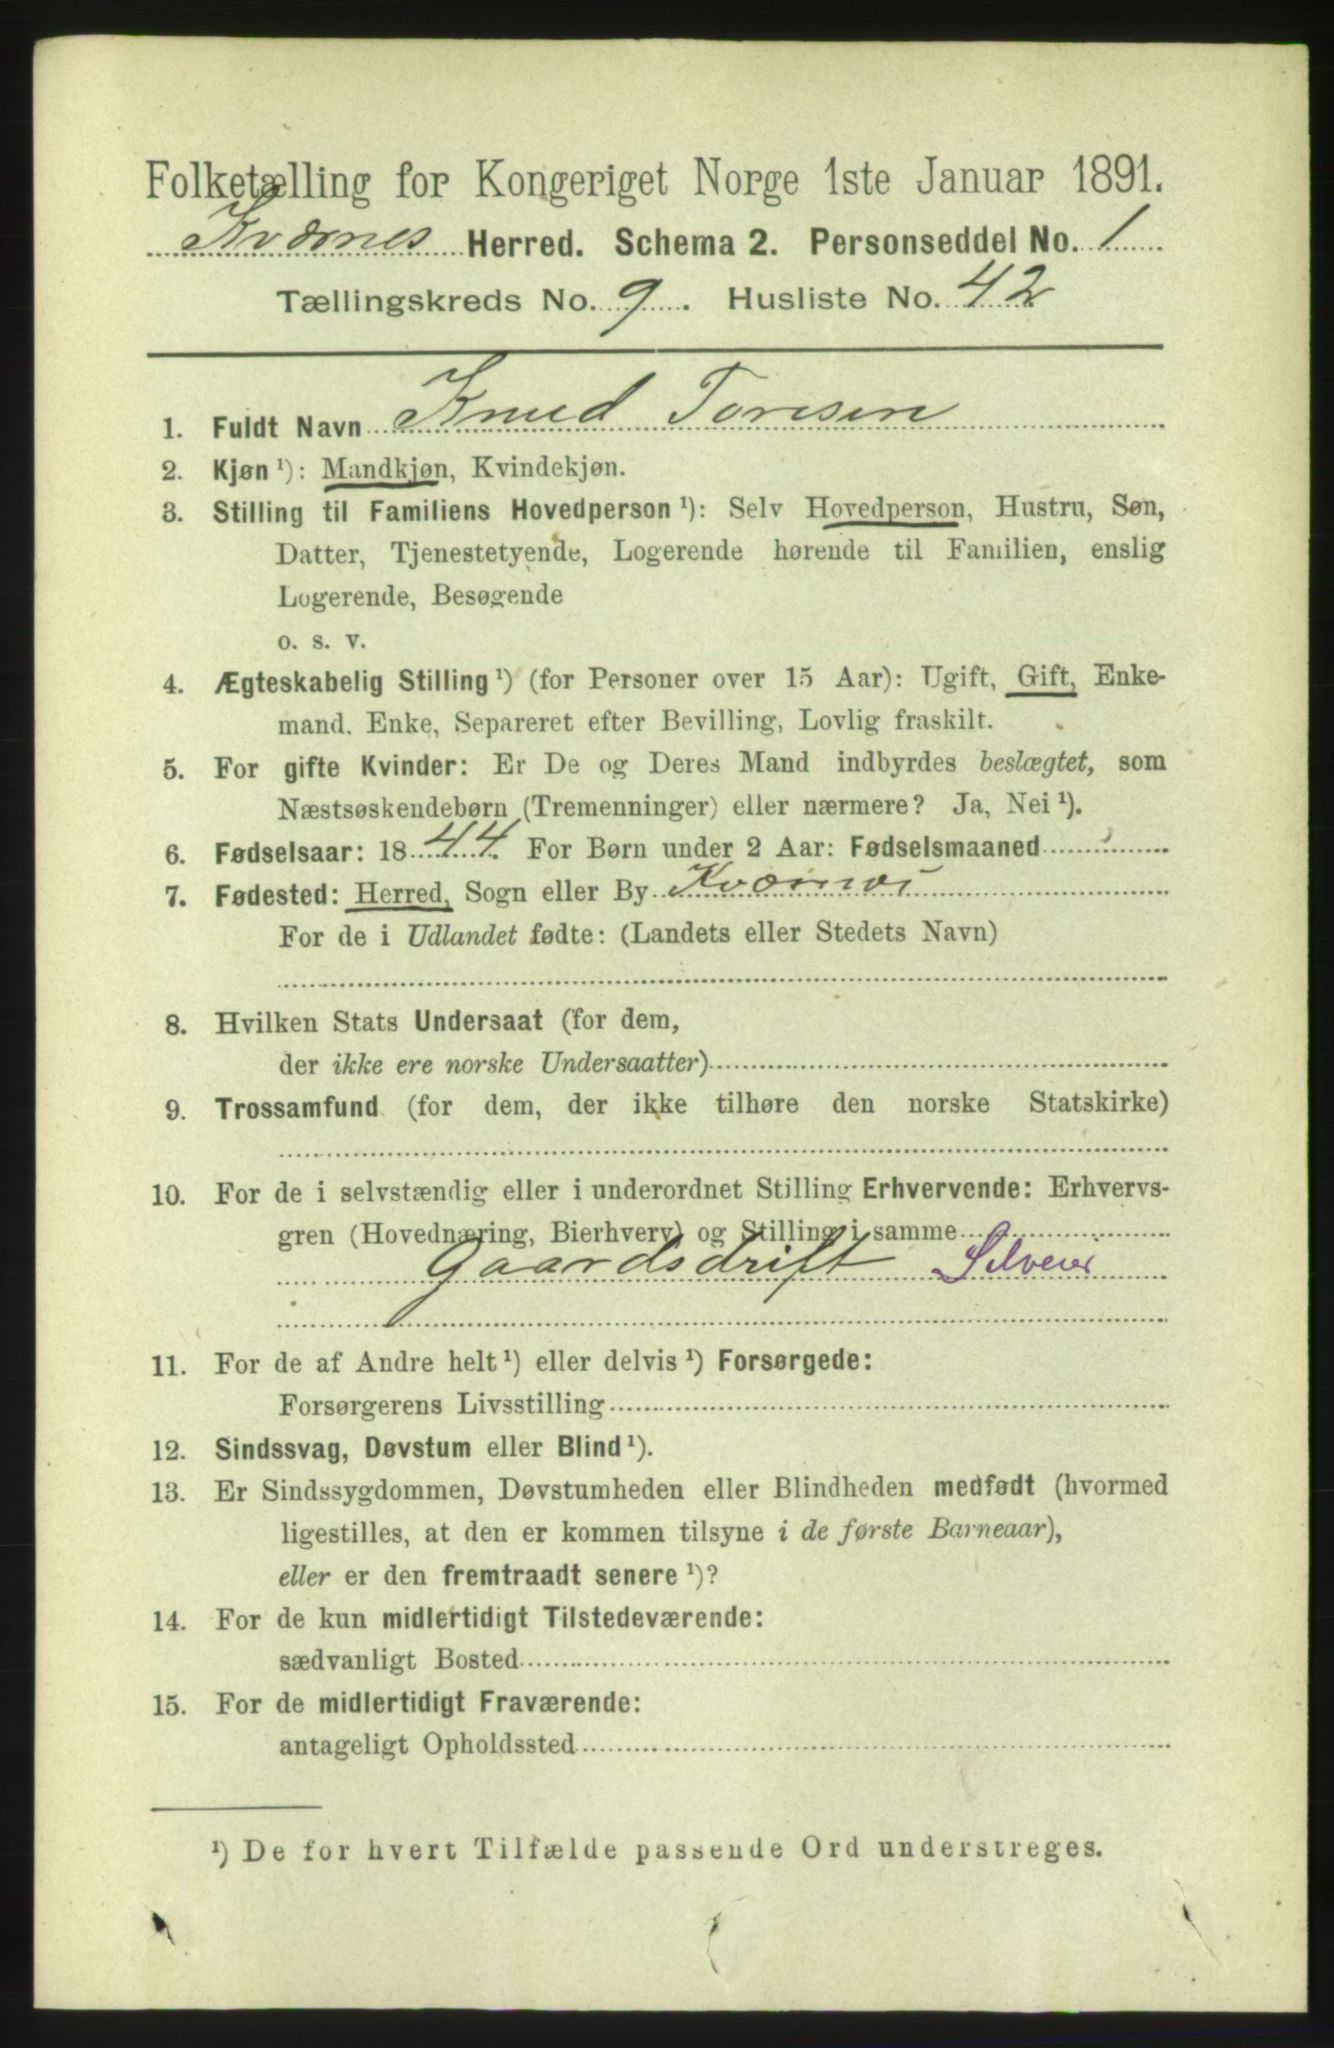 Folketælling for Kongeriget Norge 1ste Januar 1891.
Kværnes Herred. Schema 2. Personseddel No. 1
Tællingskreds No. 9. Husliste No. 42
1. Fuldt Navn Knud Toresen
2. Kjøn ¹): Mandkjøn, Kvindekjøn.
3. Stilling til Familiens Hovedperson ¹): Selv Hovedperson, Hustru, Søn,
Datter, Tjenestetyende, Logerende hørende til Familien, enslig
Logerende, Besøgende
o. s. v.
4. Ægteskabelig Stilling ¹) (for Personer over 15 Aar): Ugift, Gift, Enke-
mand, Enke, Separeret efter Bevilling, Lovlig fraskilt.
5. For gifte Kvinder: Er De og Deres Mand indbyrdes beslægtet, som
Næstsøskendebørn (Tremenninger) eller nærmere? Ja, Nei ¹).
6. Fødselsaar: 1844. For Børn under 2 Aar: Fødselsmaaned
7. Fødested: Herred, Sogn eller By Kværnes
For de i Udlandet fødte: (Landets eller Stedets Navn)
8. Hvilken Stats Undersaat (for dem,
der ikke ere norske Undersaatter)
9. Trossamfund (for dem, der ikke tilhøre den norske Statskirke)
10. For de i selvstændig eller i underordnet Stilling Erhvervende: Erhvervs-
gren (Hovednæring, Bierhverv) og Stilling i samme
Gaardsdrift Selveier
11. For de af Andre helt ¹) eller delvis ¹) Forsørgede:
Forsørgerens Livsstilling
12. Sindssvag, Døvstum eller Blind ¹).
13. Er Sindssygdommen, Døvstumheden eller Blindheden medfødt (hvormed
ligestilles, at den er kommen tilsyne i de første Barneaar),
eller er den fremtraadt senere ¹)?
14. For de kun midlertidigt Tilstedeværende:
sædvanligt Bosted
15. For de midlertidigt Fraværende:
antageligt Opholdssted
¹) De for hvert Tilfælde passende Ord understreges.